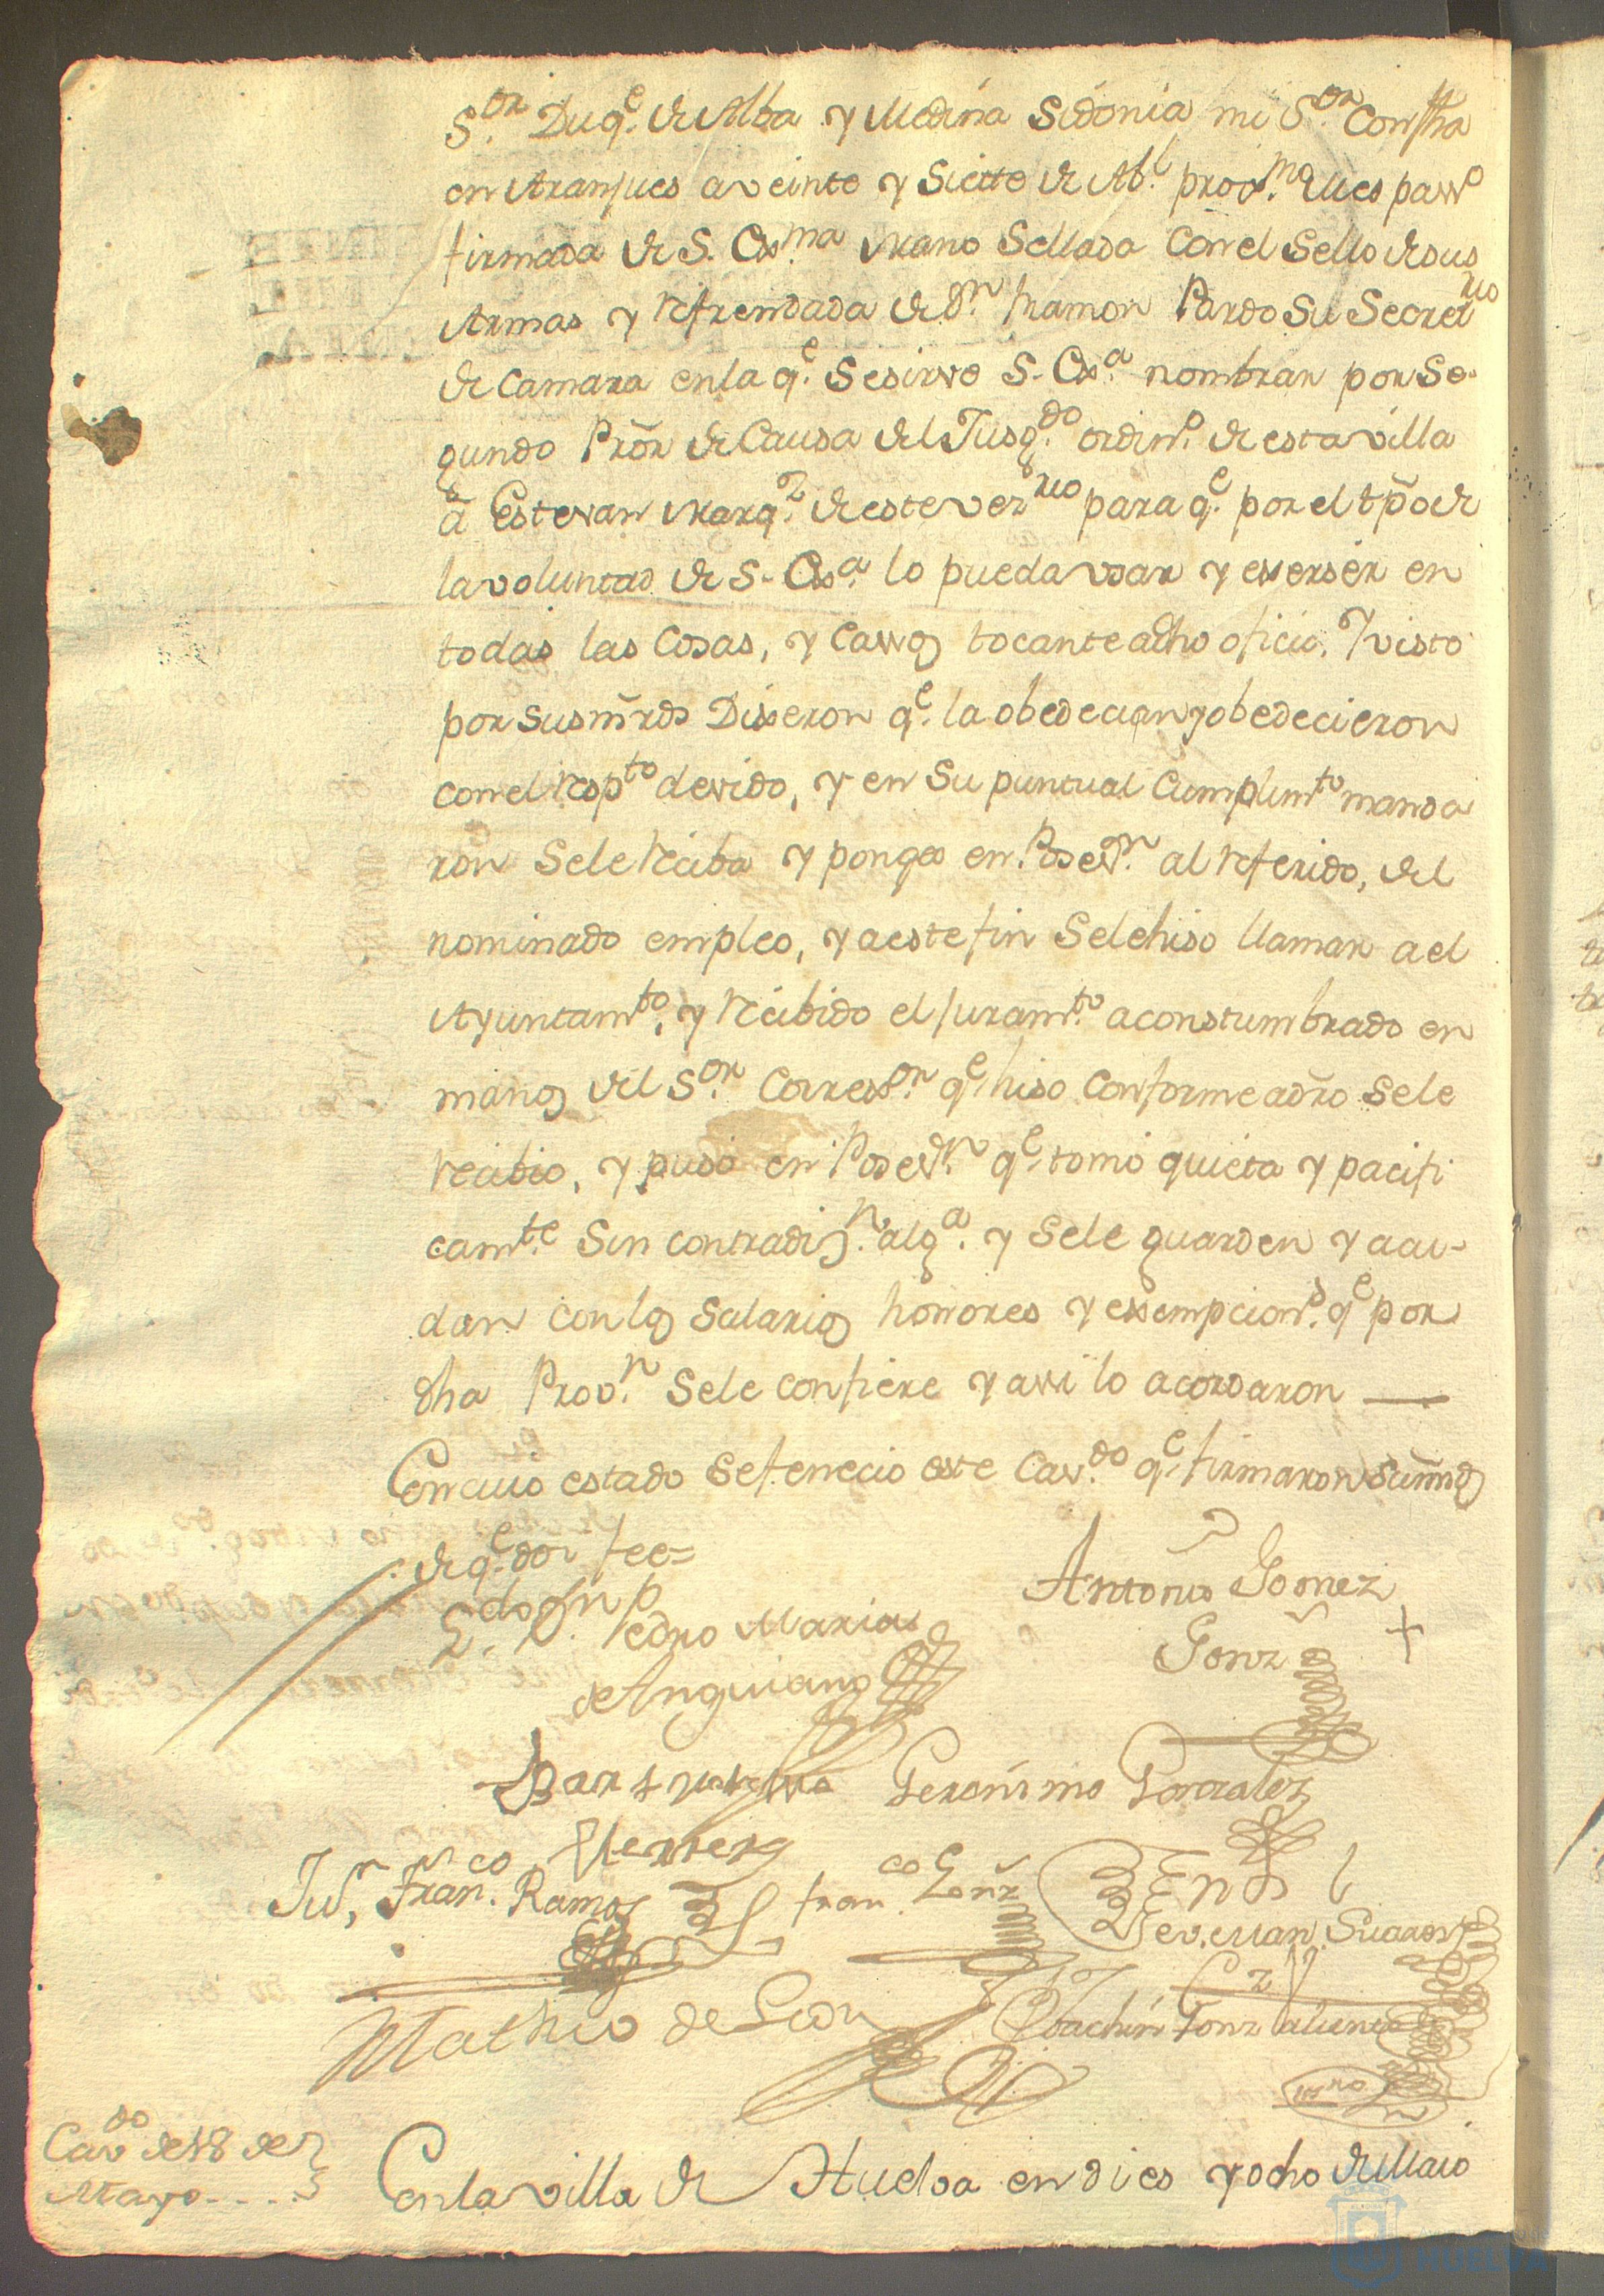 S.or Duq.e de Alba y Medina Sidonia mi S.or Con fha
en Aranjues a veinte y Siette de Ab.l prox.mo Mes passo
firmada de S. Ex.ma Mano Sellada Con el Sello de sus
Armas y refrendada de Dn. Ramon Pardo Su Secretrio
de Camara en la q.e Se sirve S. Ex.a nombrar por Se-
gundo Pror de Causa del Jusg.do ordin.o de esta villa
a Estevan Marq.z de este vezrio para q.e por el tpo de
la voluntad de S. Ex.a lo pueda vsar y exerser en
todas las Cosas, y Cassos tocante a dho oficio, Y visto
por sus mrds Dixeron q.e la obedecian y obedecieron
con el respto devido, y en Su puntual Cumplimto manda
ron Se le reciba y ponga en Poses.n al referido, del
nominado empleo, y a este fin Se le hiso llamar a el
Ayuntamto, y recibido el Juram.to aconstumbrado en
manos del S.or Corress.or q.e hiso Conforme a dro Se le
recibio, y puso en Poses.n q.e tomo quieta y pacifi
cam.te Sin contradiz.n alg.a y Se le guarden y acu-
dan con los Salarios honores y exsempcion.s q.e por
dha Prov.n Se le confiere y assi lo acordaron —
En cuio estado Se fenecio este Cav.do q.e firmaron Sus mrds
de q.e doi fee=
L.do Dn Pedro Marias
de Anguiano
Antonio Gomez
Gonz +
Herrera
Geronimo Gonzalez
Jun, Fran.co Ramos
fran.co Gonz
Mathio de Leon
Joachin Gonz
Cavdo de 18 de
Mayo....
En la villa de Huelva en dies y ocho de Maio
HUELVA